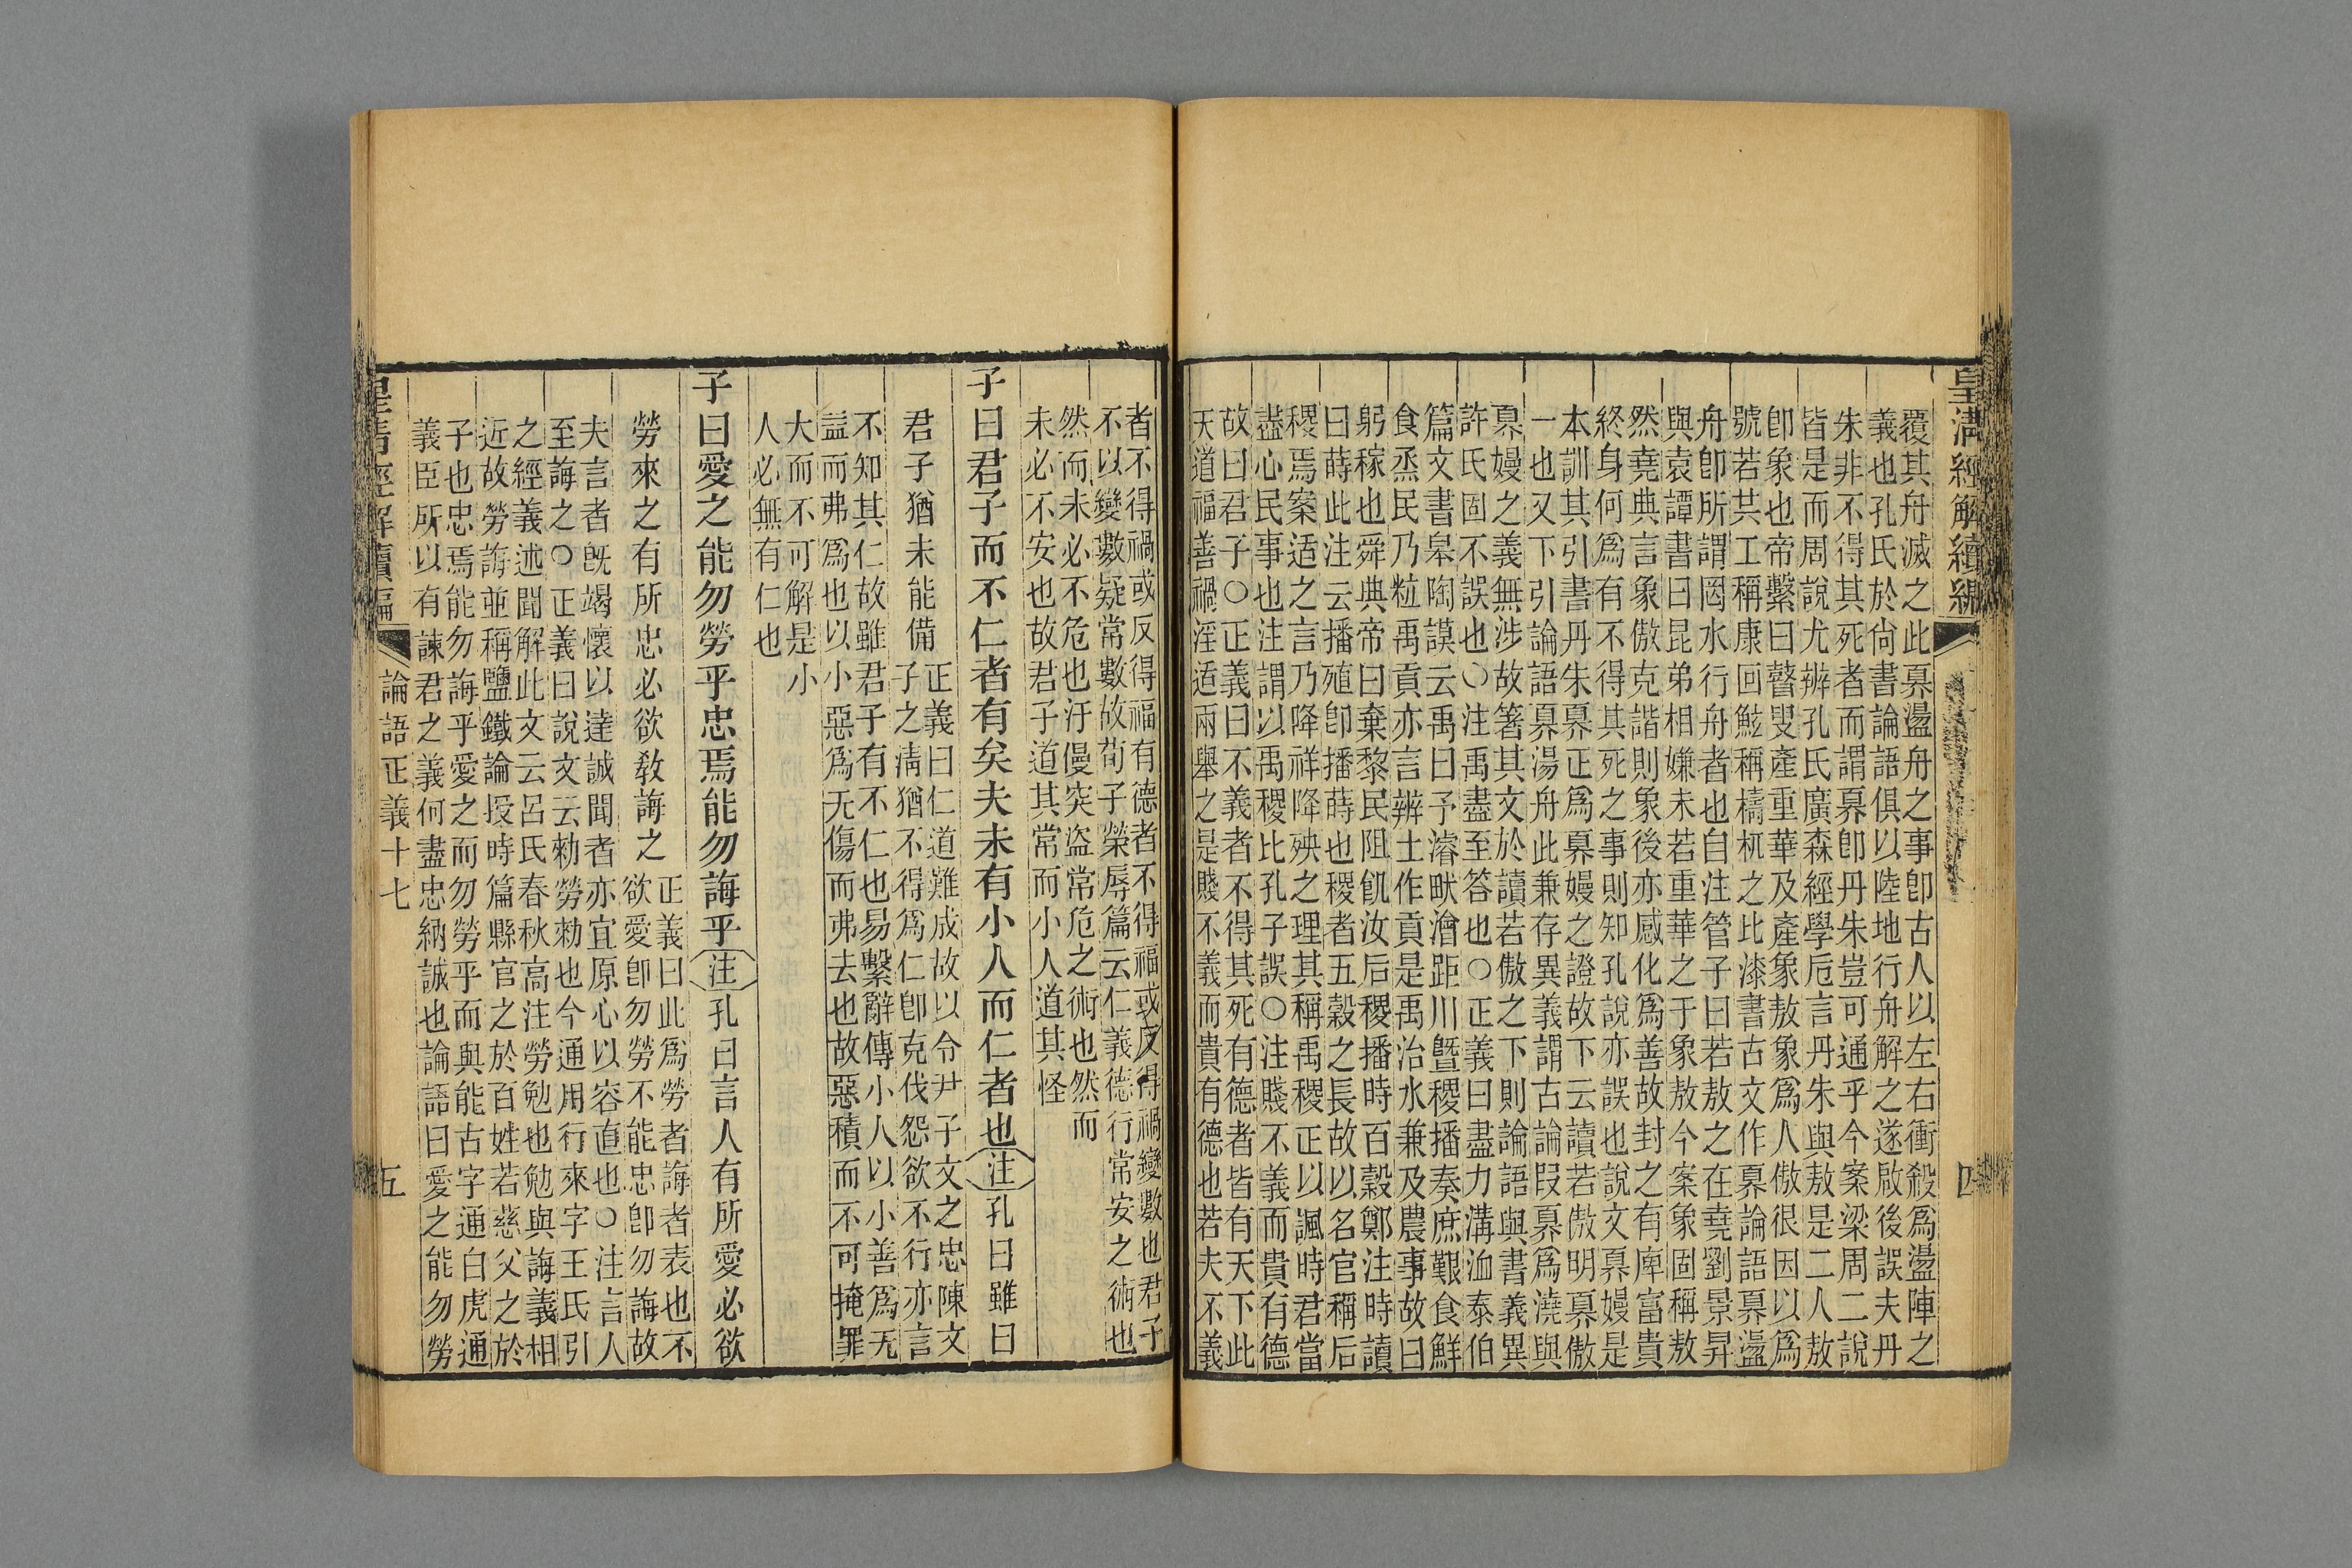 皇淸經解續編
四
覆其舟滅之此奡盪舟之事卽古人以左右衝殺爲盪陣之
義也孔氏於尙書論語俱以陸地行舟解之遂啟後誤夫丹
朱非不得其死者而謂奡卽丹朱豈可通乎今案梁周二說
皆是而周說尤辨孔氏廣森經學卮言丹朱與敖是二人敖
卽象也帝繫曰瞽叟產重華及產象敖象爲人傲很因以爲
號若共工稱康回鯀稱檮杌之比漆書古文作奡論語奡盪
舟卽所謂罔水行舟者也自注管子曰若敖之在堯劉景昇
與袁譚書曰昆弟相嫌未若重華之于象敖今案象固稱敖
然堯典言象傲克諧則象後亦感化爲善故封之有庳富貴
終身何爲有不得其死之事則知孔說亦誤也說文奡嫚是
本訓其引書丹朱奡正爲奡嫚之證故下云讀若傲明奡傲
一也又下引論語奡湯舟此兼存異義謂古論叚奡爲澆與
奡嫚之義無涉故箸其文於讀若傲之下則論語與書義異
許氏固不誤也○注禹盡至答也○正義曰盡力溝洫泰伯
篇文書皋陶謨云禹曰予濬畎澮距川曁稷播奏庶艱食鮮
食烝民乃粒禹貢亦言辨士作貢是禹治水兼及農事故曰
躬稼也舜典帝曰棄黎民阻飢汝后稷播時百穀鄭注時讀
曰蒔此注云播殖卽播蒔也稷者五穀之長故以名官稱后
稷焉案适之言乃降祥降殃之理其稱禹稷正以諷時君當
盡心民事也注謂以禹稷比孔子誤○注賤不義而貴有德
故曰君子○正義曰不義者不得其死有德者皆有天下此
天道福善禍淫适兩舉之是賤不義而貴有德也若夫不義
者不得禍或反得福有德者不得福或反得禍變數也君子
不以變數疑常數故荀子榮辱篇云仁義德行常安之術也
然而未必不危也汙僈突盜常危之術也然而
未必不安也故君子道其常而小人道其怪
子曰君子而不仁者有矣夫未有小人而仁者也注孔曰雖曰
君子猶未能備正義曰仁道難成故以令尹子文之忠陳文
子之淸猶不得爲仁卽克伐怨欲不行亦言
不知其仁故雖君子有不仁也易繫辭傳小人以小善爲无
益而弗爲也以小惡爲无傷而弗去也故惡積而不可掩罪
大而不可解是小
人必無有仁也
子曰愛之能勿勞乎忠焉能勿誨乎注孔曰言人有所愛必欲
勞來之有所忠必欲敎誨之正義曰此爲勞者誨者表也不
欲愛卽勿勞不能忠卽勿誨故
夫言者旣竭懷以達誠聞者亦宜原心以容直也○注言人
至誨之○正義曰說文云勑勞勑也今通用行來字王氏引
之經義述聞解此文云呂氏春秋高注勞勉也勉與誨義相
近故勞誨並稱鹽鐵論授時篇縣官之於百姓若慈父之於
子也忠焉能勿誨乎愛之而勿勞乎而與能古字通白虎通
義臣所以有諫君之義何盡忠納誠也論語曰愛之能勿勞
皇淸經解續編 論語正義十七 五